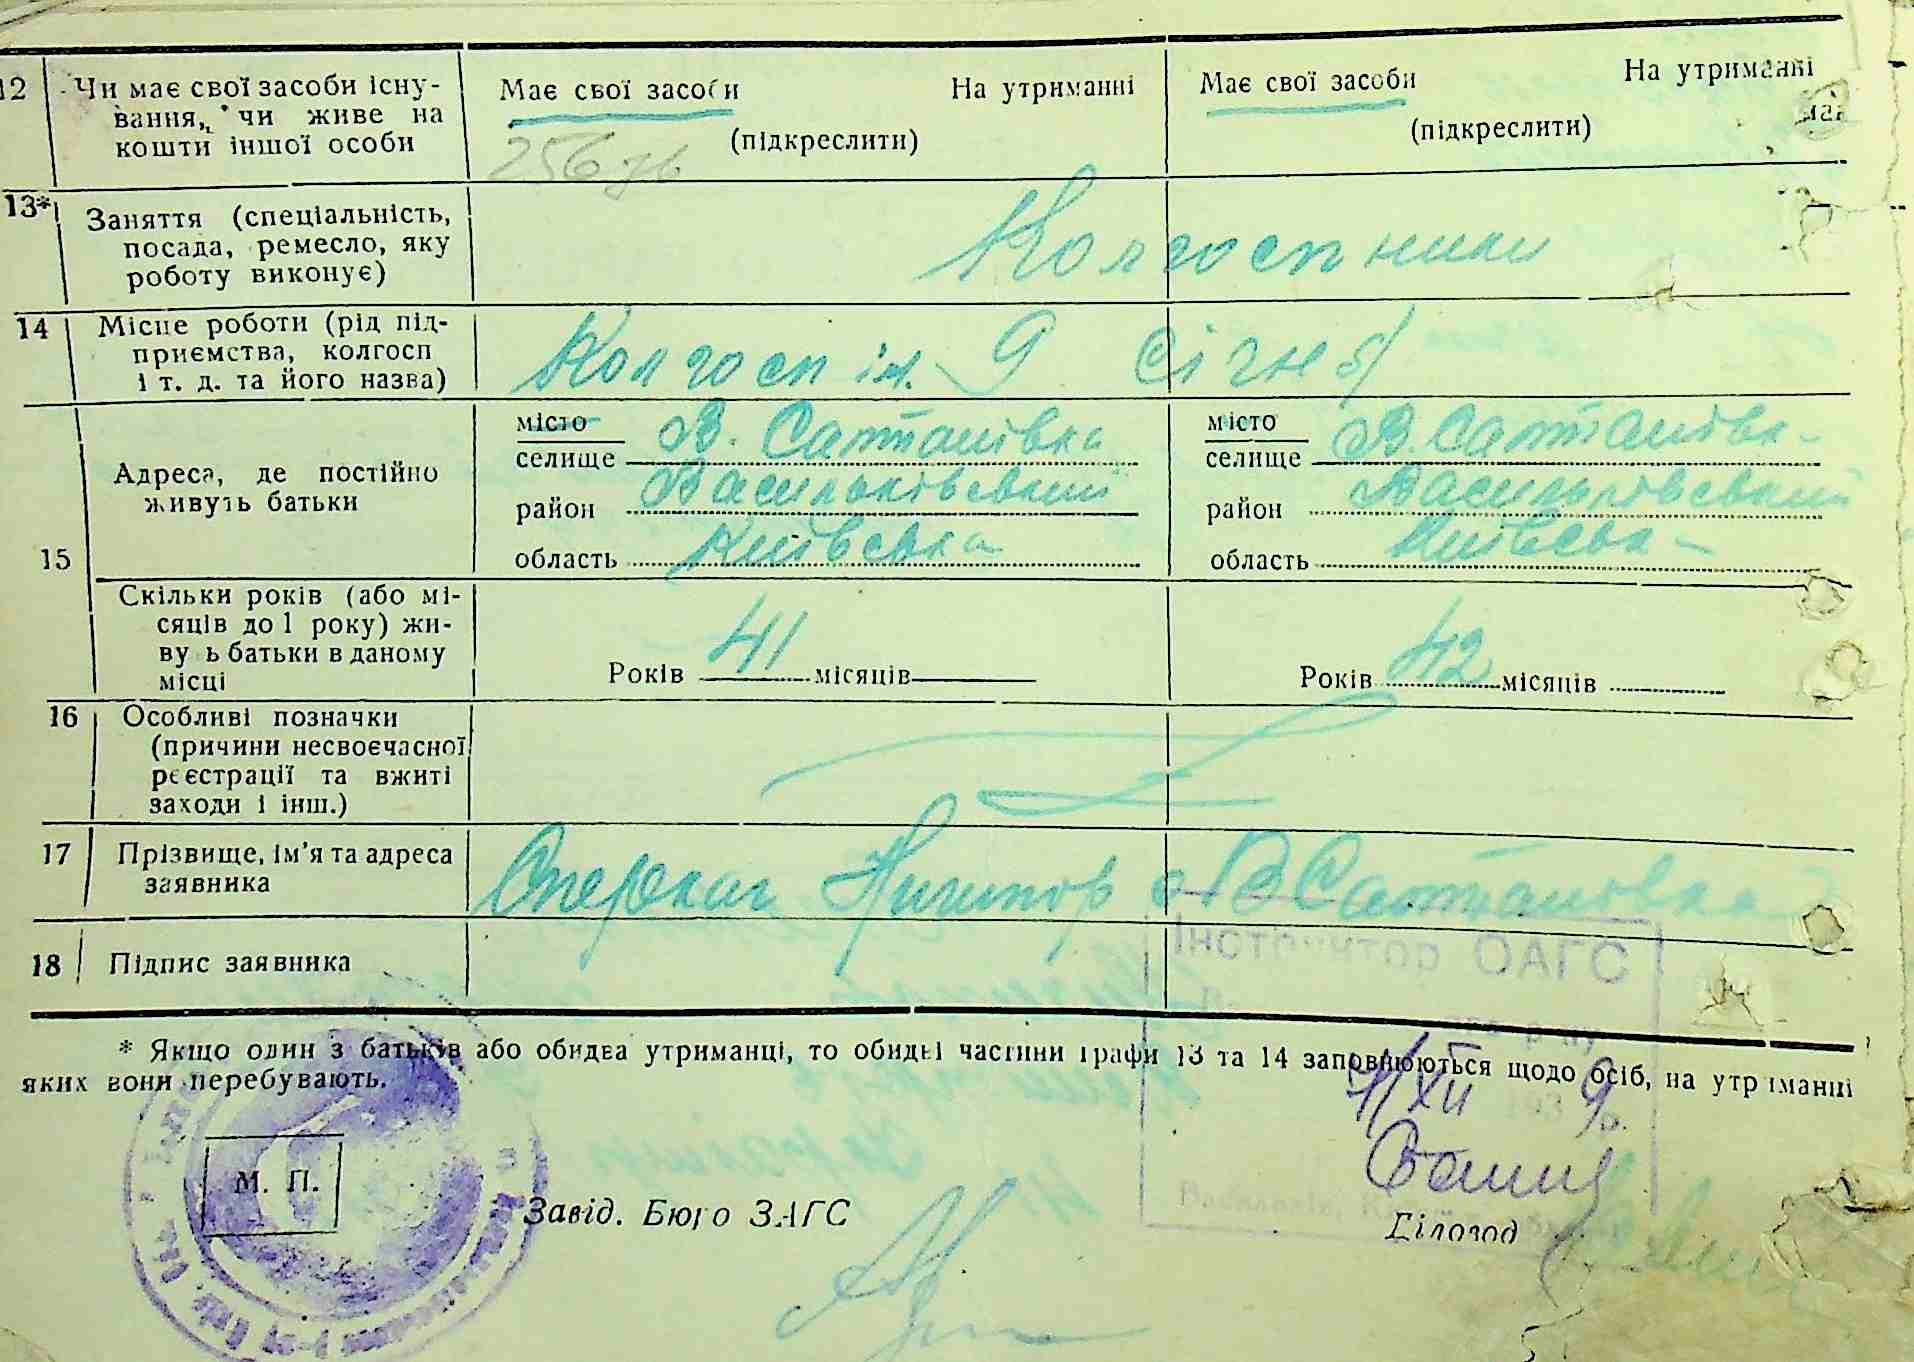 12 Чи має свої засоби існу-
вання, чи живе на
кошти іншої особи
Має свої засоби На утриманні
(підкреслити)
Має свої засоби На утриманні
(підкреслити)
13* Заняття (спеціальність,
посада, ремесло, яку
роботу виконує)
Колгоспники
14 Місце роботи (рід під-
приємства, колгосп
і т. д. та його назва)
Колгосп ім. 9 Січня
15 Адреса, де постійно
живуть батьки
місто
селище В. Салтанівка
район Васильківський
область Київська
місто
селище В. Салтанівка
район Васильківський
область Київська
Скільки років (або мі-
сяців до 1 року) жи-
ву ь батьки в даному
місці
Років 41 місяців
Років 42 місяців
16 Особливі позначки
(причини несвоєчасної
реєстрації та вжиті
заходи і інш.)
17 Прізвище, ім'я та адреса
заявника
В Салтанівка
18 Підпис заявника
Інструктор ОАГС
* Якщо один з батьків або обидва утриманці, то обидві частини графи 13 та 14 заповнюються щодо осіб, на утриманні
яких вони перебувають.
XII 1939 р.
М. П.
Завід. Бюро ЗАГС
Діловод